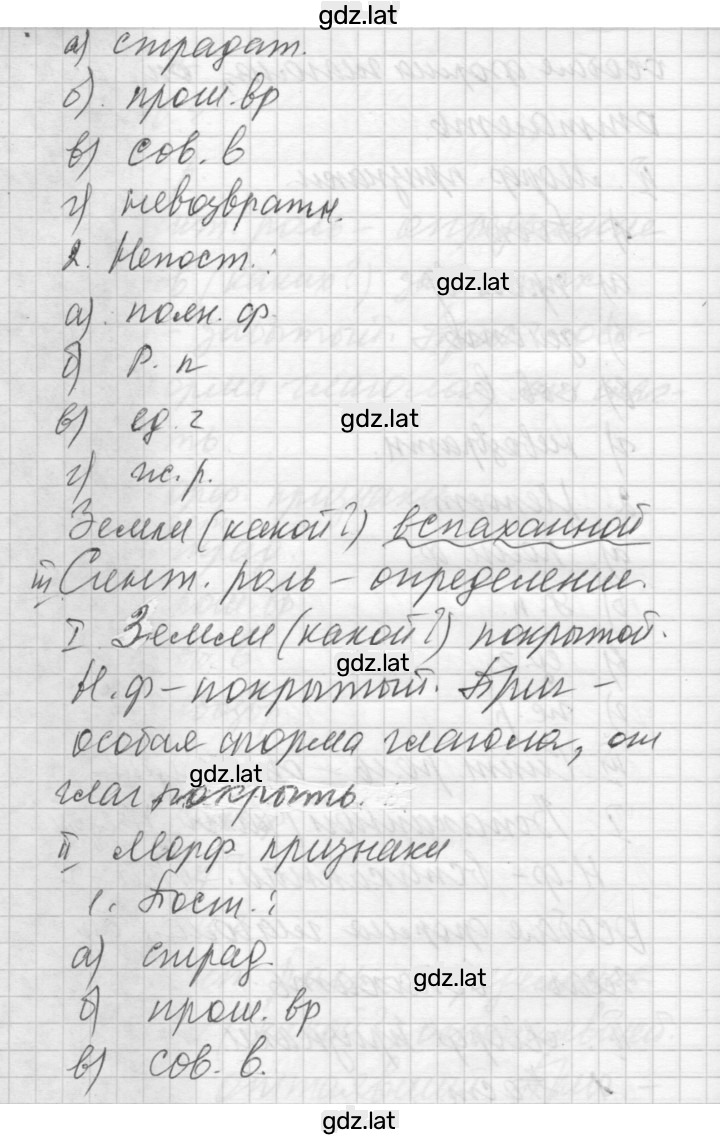 gdz.lat
а) страдат.
б). прош. вр
в) сов. в
г) невозвратн.
2. Непост.:
gdz.lat
а). полн. ф.
б) Р. п
в) ед. ч
gdz.lat
г) ж. р.
Земли (какой?) вспаханной
III. Синт. роль – определение.
I Земли (какой?) покрытой.
gdz.lat
Н. ф – покрытый. Прич –
особая форма глагола, от
gdz.lat
глаг покрыть.
II Морф признаки
1. Пост.:
а) страд.
gdz.lat
б) прош. вр
в) сов. в.
gdz.lat